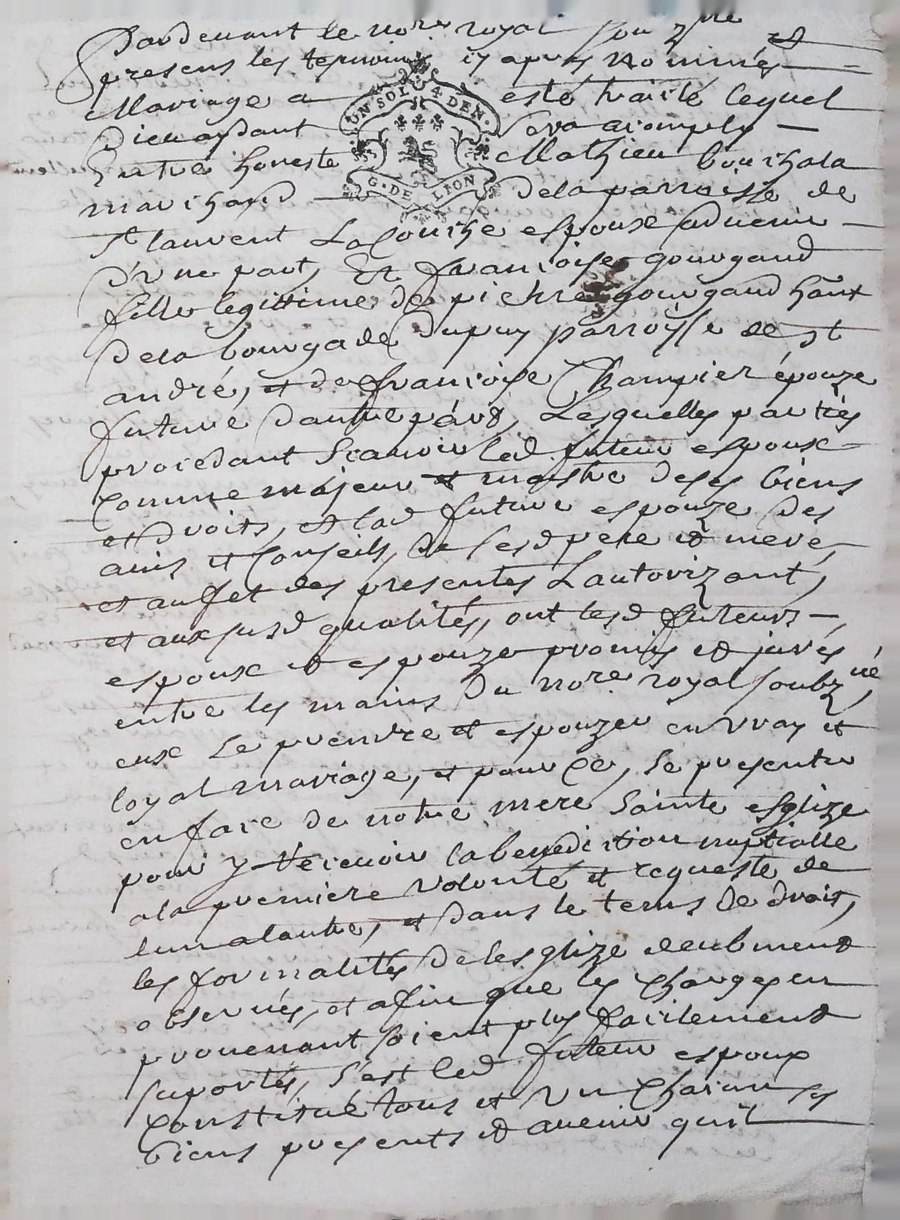 Pardevant le nore royal soubzne et
presens les tesmoins cy apres nommés
Mariage a esté traité lequel
Dieu aydant sera acomply
UN SOL 4. DEN.
G. DE LION
Entre honeste Mathieu bouchala
marchand de la parroisse de
St laurent Laconche espoux advenir
d'une part, Et francoise gourgaud
fille legittime de pierre gourgaud hant
de la bourgade Dupuy parroisse de st
andré, et de francoise Champier épouze
future dautre part, Lesquelles parties
procedant Scavoir led futeur espoux
Comme majeur et maistre de ses biens
et droits, et lad future espouze des
avis et Conseils, de sesd pere et mere
et au fet des presentes Lautorizant,
et aux susd qualités, ont lesd futeurs
espoux et espouze promis et jurés
entre les mains du nore royal soubzné
eux Se prendre et espouzer en vray et
loyal mariage, et pour Ce, Se presenter
en face de notre mere Sainte esglize
pour y Recevoir la benediction nuptialle
a la premiere volonté et requeste de
lun a lautre, et dans le tems de droit,
les formalités de lesglize deubment
observés, et afin que les Charges en
provenant soient plus facilement
suportés, S'est led futeur espoux
Constitué tous et Un Chaicuns ses
biens presents et avenir quil